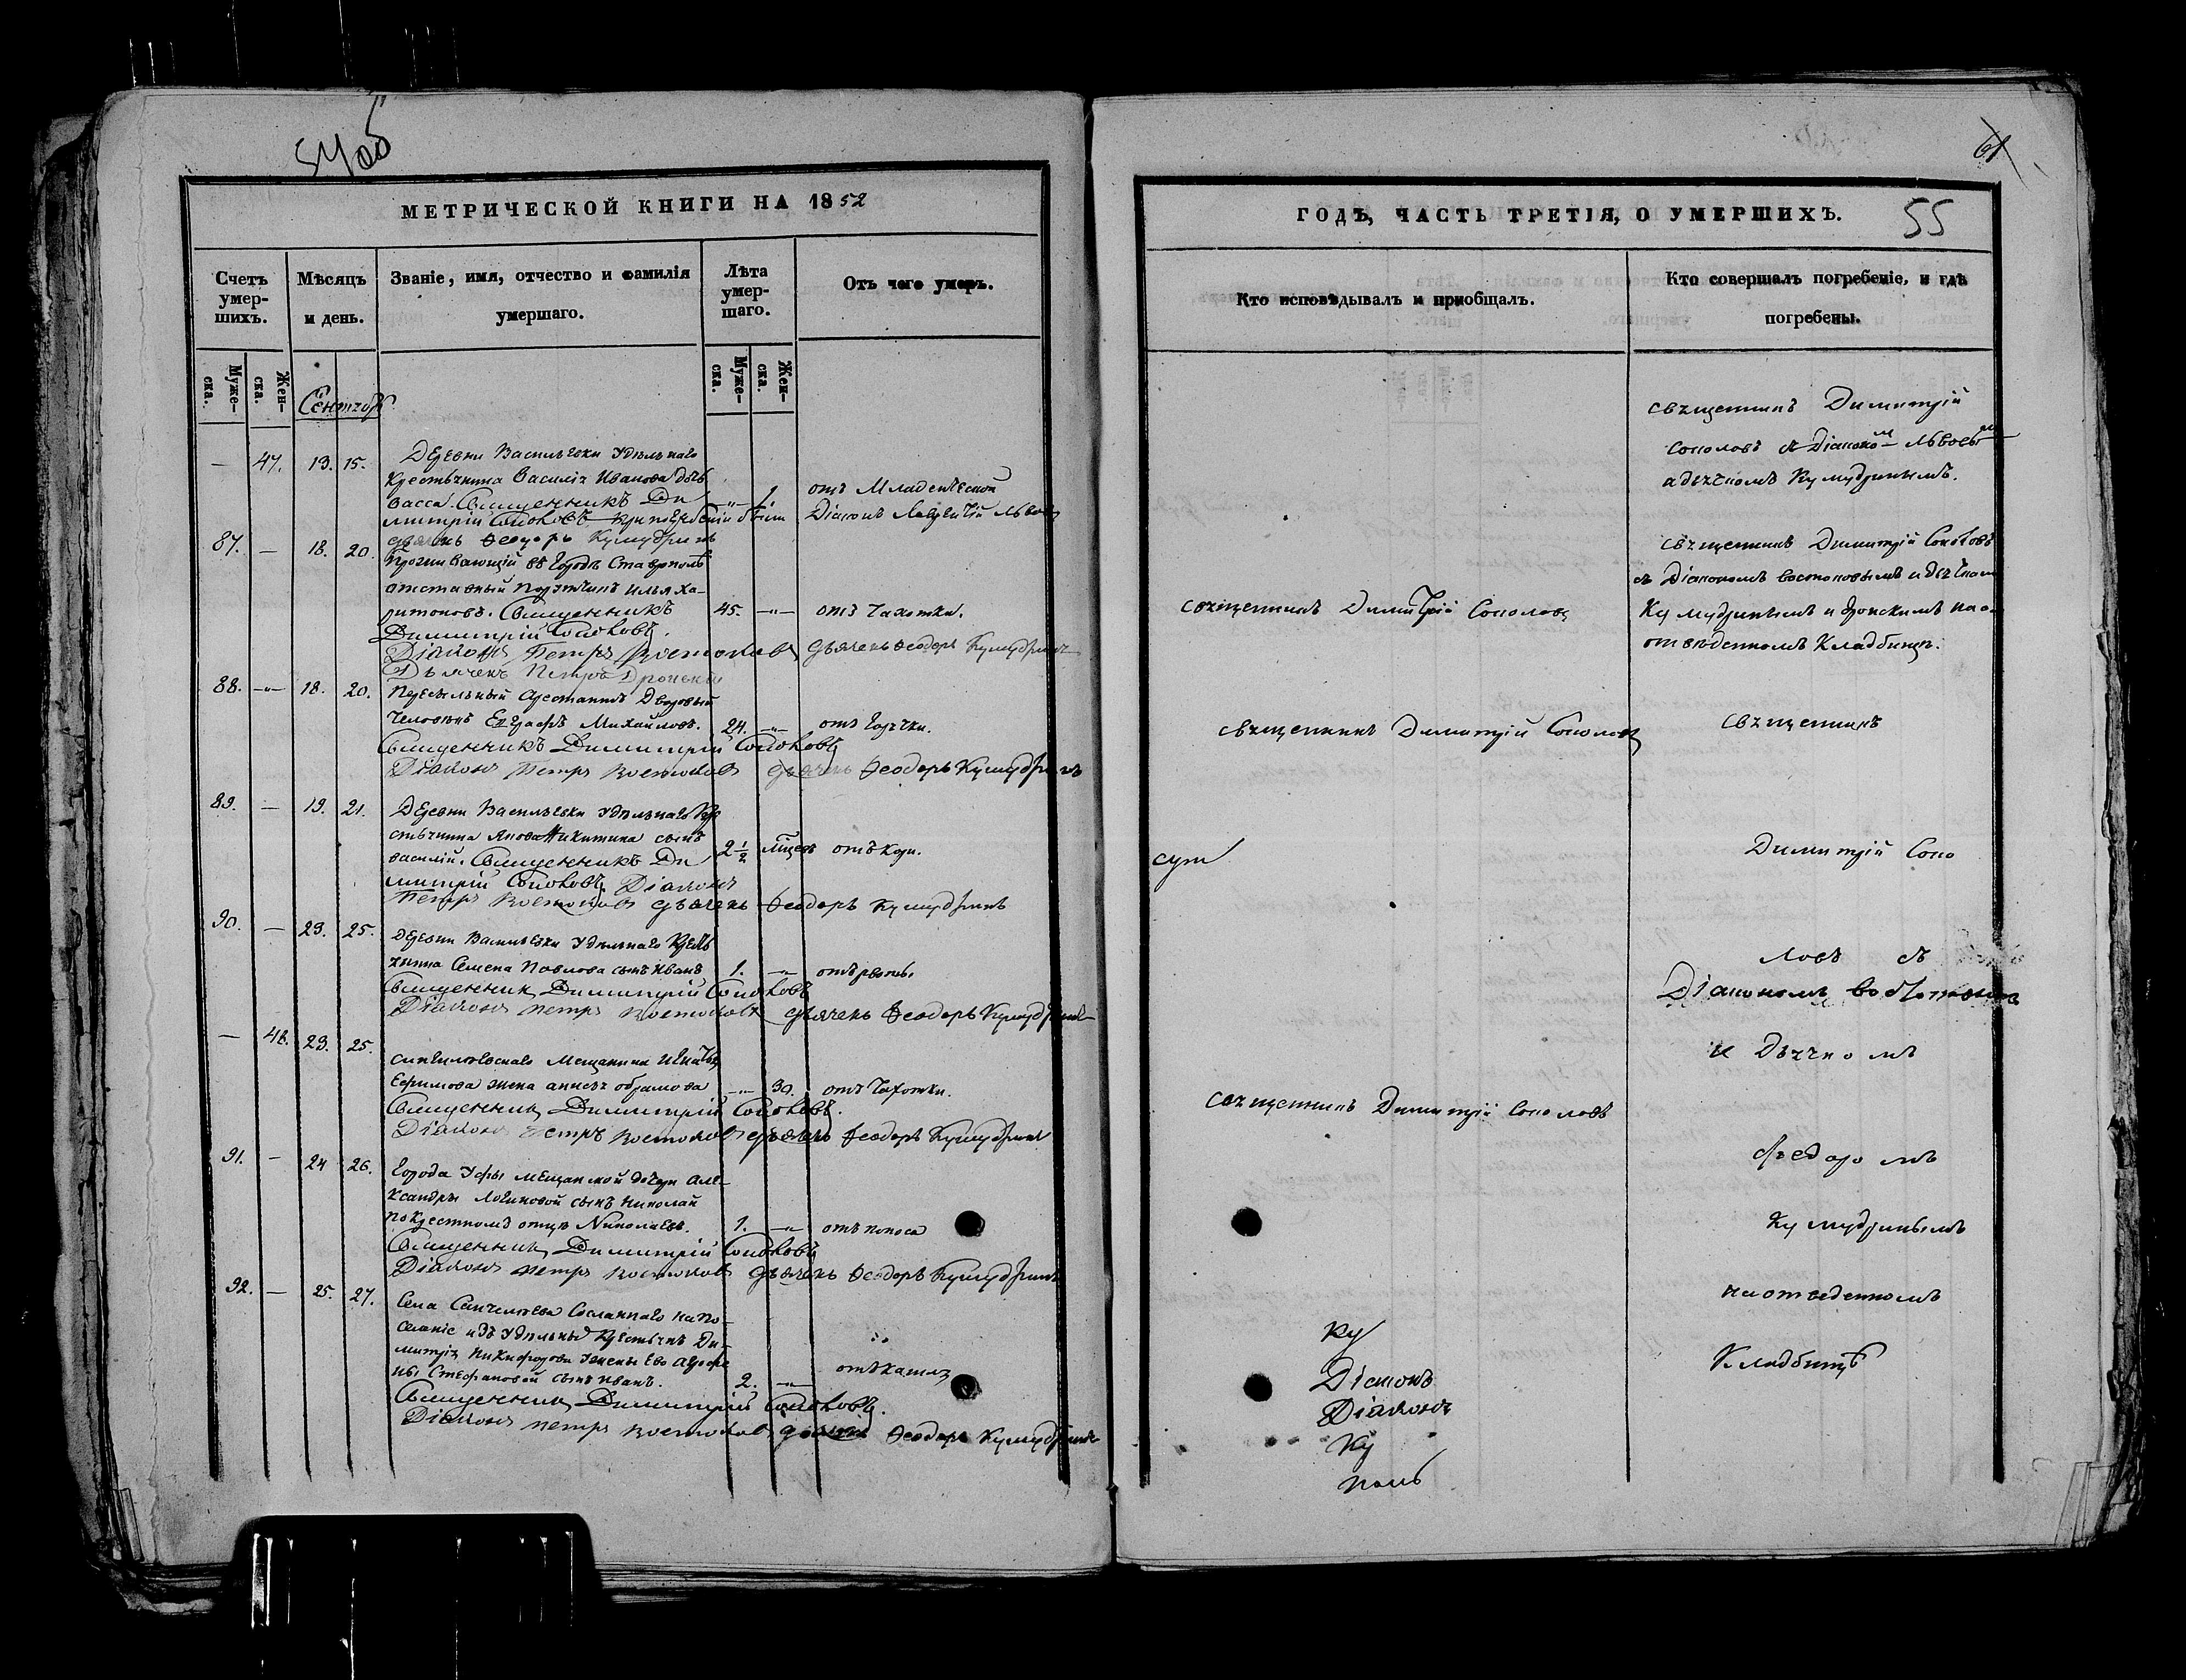 МЕТРИЧЕСКОЙ КНИГИ НА 1852
Счетъ умер-шихъ.
Мѣсяцъ и день.
Званіе, имя, отчество и фамилія умершаго.
Лѣта умер-шаго.
Отъ чего умеръ.
Муже-ска.
Жен-ска.
Муже-ска.
Жен-ска.
— 47. 13. 15. Деревни Васильевки Удѣльнаго
Крестьянина Василія Иванова дочь
Васса. Священникъ Ди — 1. отъ Младенческой
митрій Соколовъ При погребеніи были Діаконъ
дьячекъ Феодоръ Кумудринъ
87. — 18. 20. Проживающій въ Городѣ Ставрополѣ
отставный Поручикъ Илья Ха-
ритоновъ. Священникъ 45. — отъ Чахотки.
Димитрій Соколовъ.
Діаконъ Петръ Востоковъ дьячекъ Феодоръ Кумудринъ
Дьячекъ Петръ
88. — 18. 20. Пересыльный Арестантъ Дворовый
Человѣкъ Евграфъ Михайловъ. 24. — отъ Горячки.
Священникъ Димитрій Соколовъ
Діаконъ Петръ Востоковъ дьячекъ Феодоръ Кумудринъ
89. — 19. 21. Деревни Васильевки Удѣльнаго Кре
стьянина Никитина сынъ
Василій. Священникъ Ди 2 1/2 отъ Кори.
митрій Соколовъ. Діаконъ
Петръ Востоковъ дьячекъ Феодоръ Кумудринъ
90. — 23. 25. Деревни Васильевки Удѣльнаго Кресть
янина Семена Павлова сынъ Иванъ 1. — отъ рвоты.
Священникъ Димитрій Соколовъ
Діаконъ Петръ Востоковъ дьячекъ Феодоръ Кумудринъ
— 48. 23. 25. Мещанина Игнатья
Ефимова жена — 30. отъ Чахотки.
Священникъ Димитрій Соколовъ.
Діаконъ Петръ Востоковъ дьячекъ Феодоръ Кумудринъ
91. — 24 26. Города Уфы мещанской дочери Але-
ксандры Логиновой сынъ Николай
по крестномъ отцѣ Николаевъ. 1. — отъ поноса
Священникъ Димитрій Соколовъ
Діаконъ Петръ Востоковъ дьячекъ Феодоръ Кумудринъ
92. — 25. 27. Села Санчелѣева Сосланнаго на по-
селеніе изъ Удѣльныхъ Крестьянъ Ди-
митрія Никифорова жены Его Агрофе
ны Стефановой сынъ Иванъ. 2. — отъ кашля
Священникъ Димитрій Соколовъ.
Діаконъ Петръ Востоковъ дьячекъ Феодоръ Кумудринъ
61
ГОДЪ, ЧАСТЬ ТРЕТІЯ, О УМЕРШИХЪ. 55
Кто исповѣдывалъ и пріобщалъ.
Кто совершалъ погребеніе, и гдѣ погребены.
священникъ Димитрій
Соколовъ съ Діакономъ Львовымъ
и дьячкомъ Кумудринымъ.
священникъ Димитрій Соколовъ
съ Діакономъ Востоковымъ и дьячкам
священникъ Димитрій Соколовъ
Кумудринымъ и на
отведенномъ Кладбищѣ.
священникъ Димитрій Соколовъ
священникъ
Димитрій Соко
ловъ съ
Діакономъ Востоковым
и Дьячкомъ
священникъ Димитрій Соколовъ
Федоромъ
Кумудринымъ
на отведенномъ
Кладбищѣ
Ку
Діаконъ
Діаконъ
Ку